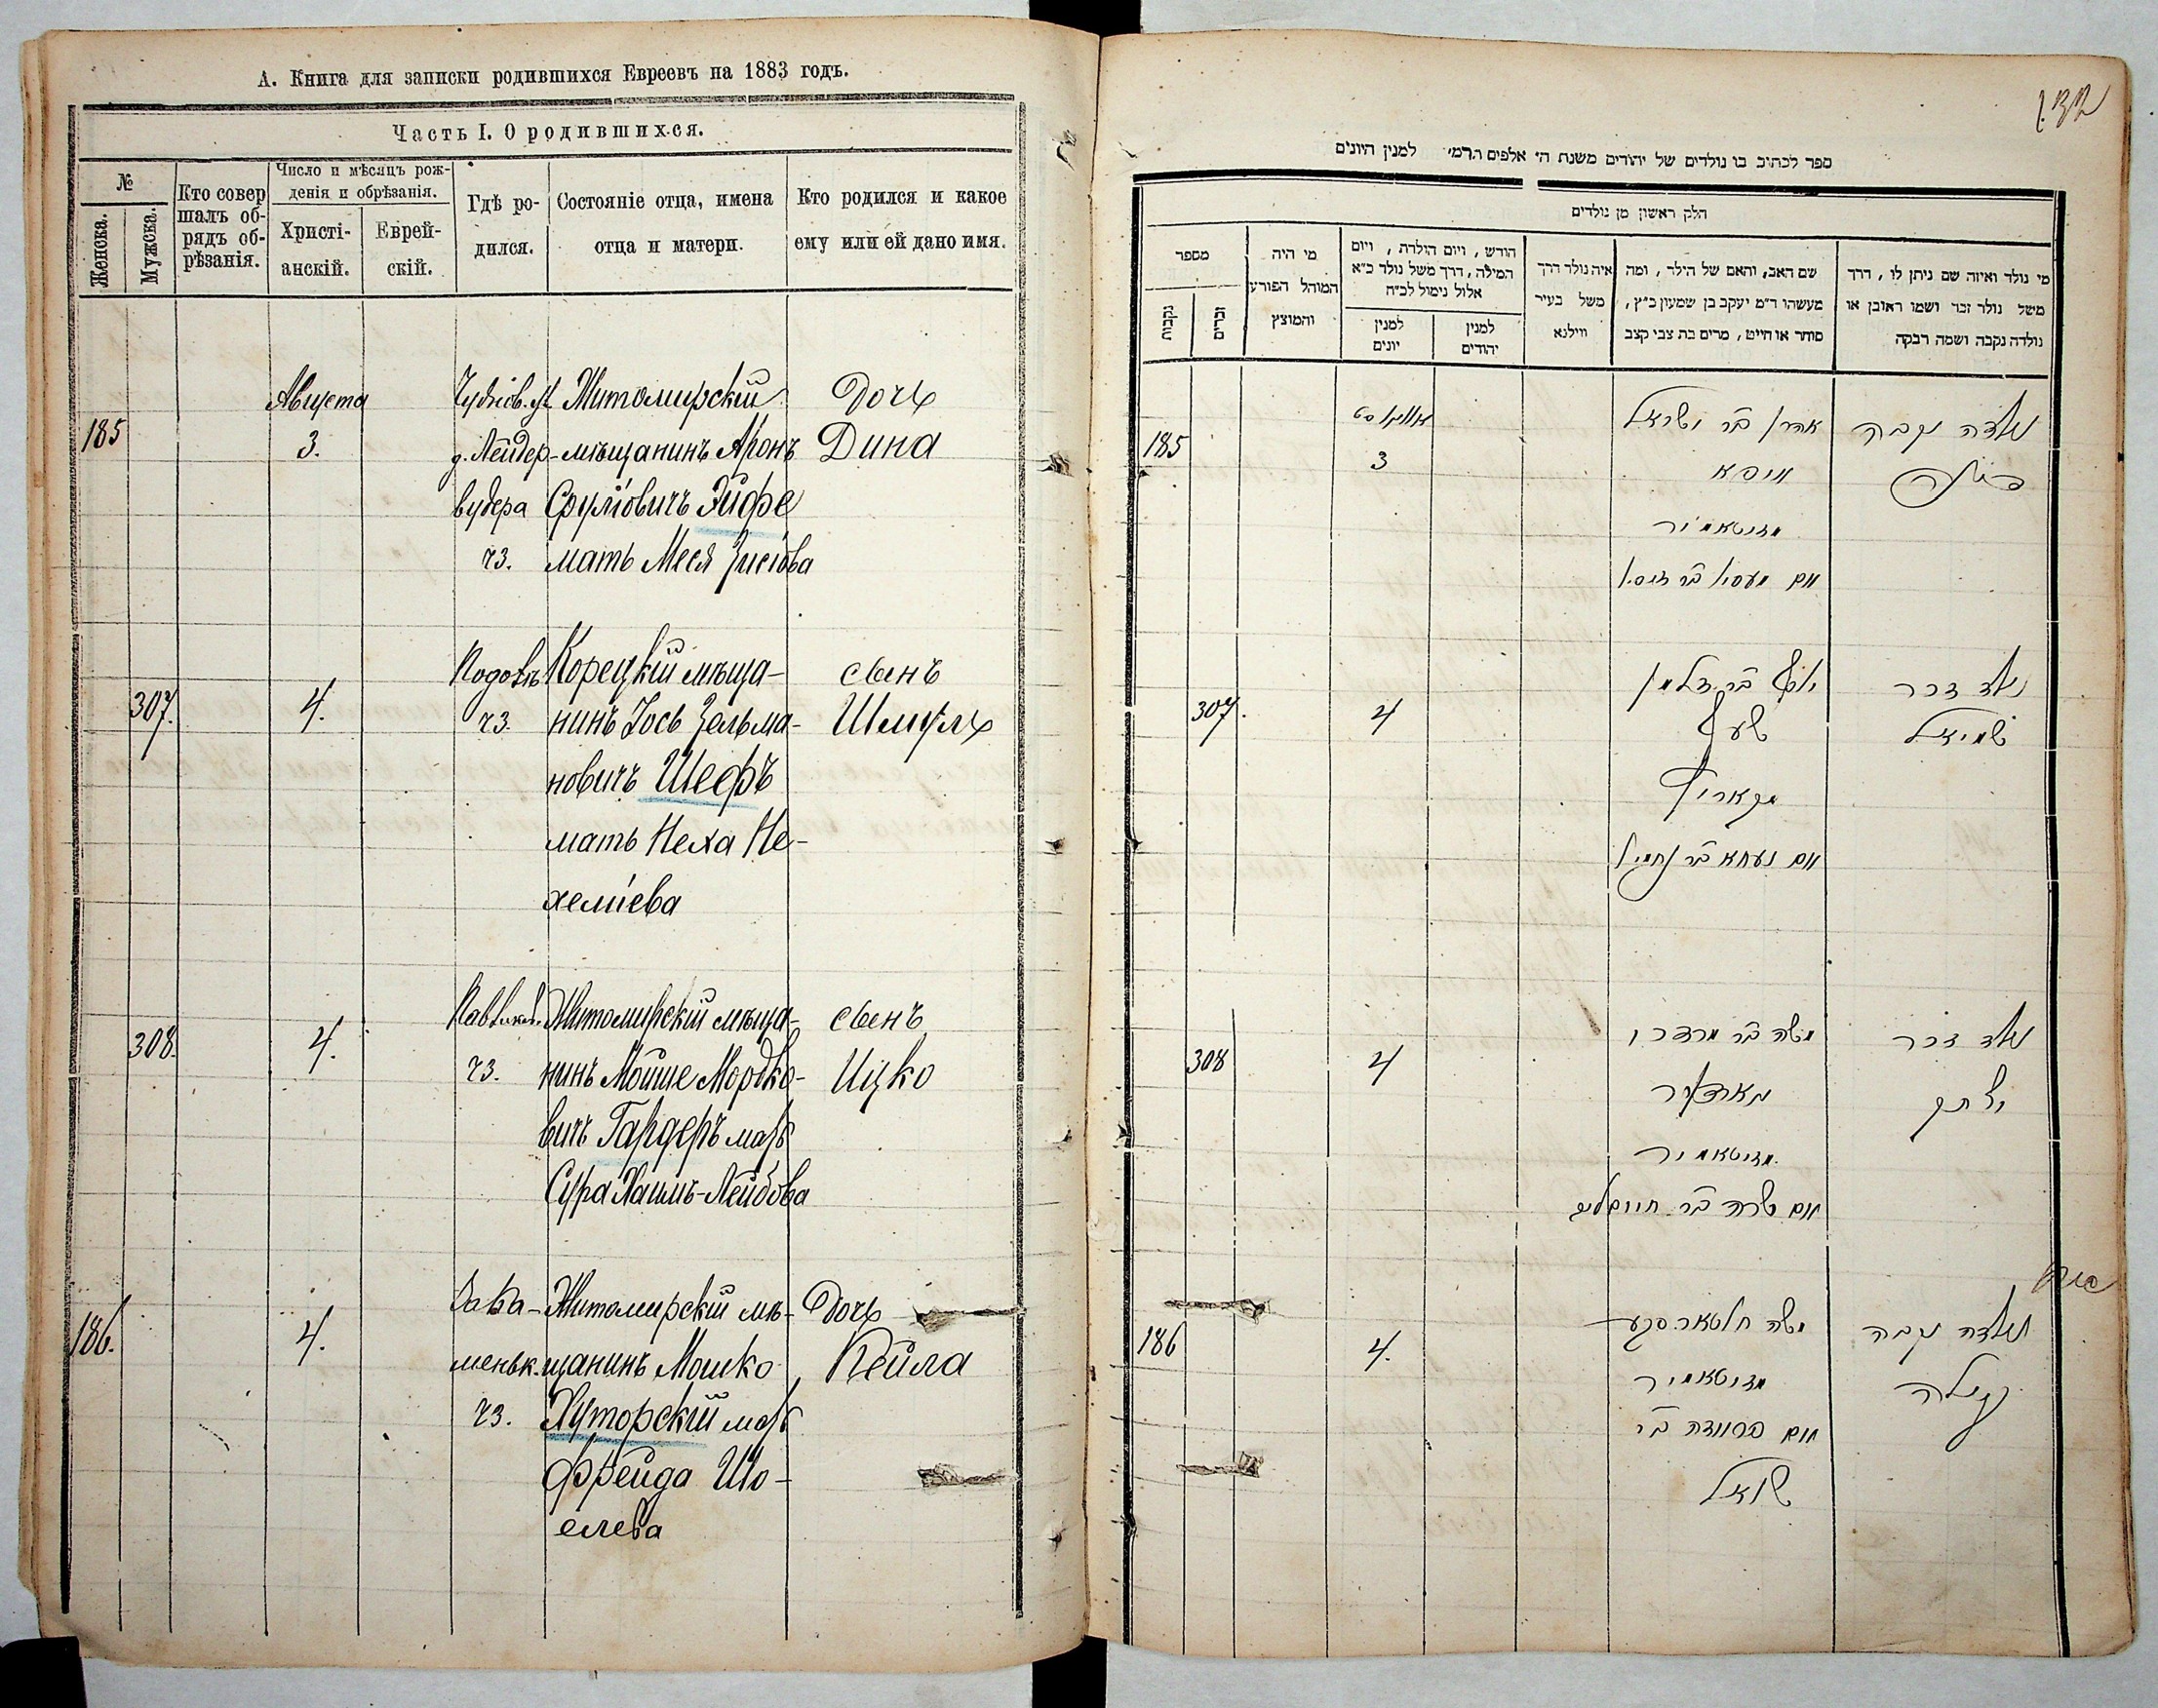 А. Книга для записки родившихся Евреевъ на 1883 годъ.
Часть I. О родившихся.
№
Женска.
Мужска.
Кто совер
шалъ об-
рядъ об-
рѣзанія.
Число и мѣсяцъ рож-
денія и обрѣзанія.
Христі-
анскій.
Еврей-
скій.
Гдѣ ро-
дился.
Состояніе отца, имена
отца и матери.
Кто родился и какое
ему или ей дано имя.
185
Августа
3.
Чуднов. ул.
д. Лейдер-
вудера
чз.
Житомирскій
мѣщанинъ Аронъ
Сруліовичъ Эйфе
мать Меся Зисіова
Дочь
Дина
307.
4.
чз.
Корецкій мѣща-
нинъ Іось Зельма-
новичъ Шефъ
мать Неха Не-
хеміева
сынъ
Шмуль
308.
4.
чз.
Житомирскій мѣща-
нинъ Мойше Мордко-
вичъ Гардеръ мать
Сура Хаимъ-Лейбова
сынъ
Ицко
186.
4.
чз.
Житомирскій мѣ-
щанинъ Мошко
Хуторскій мать
Фрейда Шо-
елева
Дочь
Кейла
ספר לכתיב בו נולדים של יהודים משנת ה' אלפים תרמ' למנין היונים
חלק ראשון מן נולדים
מספר
נקבות
זכרים
מי היה
המוהל הפורע
והמוצץ
חודש, ויום הולדת, ויום
המילה, דרך משל נולד כ"א
אלול נימול לכ"ח
למנין
יונים
למנין
יהודים
איה נולד דרך
משל בעיר
ווילנא
שם האב, והאם של הילד, ומה
מעשהו ד"מ יעקב בן שמעון כ"ץ,
סוחר או חייט, מרים בת צבי קצב
מי נולד ואיזה שם ניתן לו, דרך
משל נולד זכר ושמו ראובן או
נולדה נקבה ושמה רבקה
185
אויגוסט
3
אהרן בר ישראל
אייפא
מזיטאמיר
נולדה נקבה
307.
4
יוסף בר זלמן
שעף
מקאריץ
נולד זכר
שמואל
308
4
משה בר מרדכי
מזיטאמיר
נולד זכר
יצחק
186
4.
מזיטאמיר
שואל
נולדה נקבה
קיילה